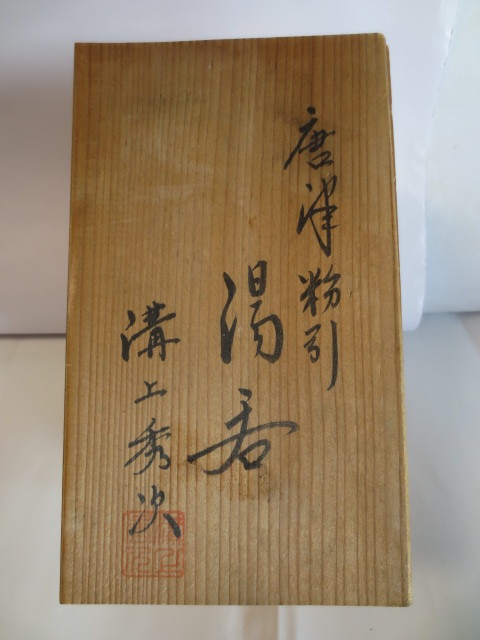 唐津粉引
湯呑
溝上秀次